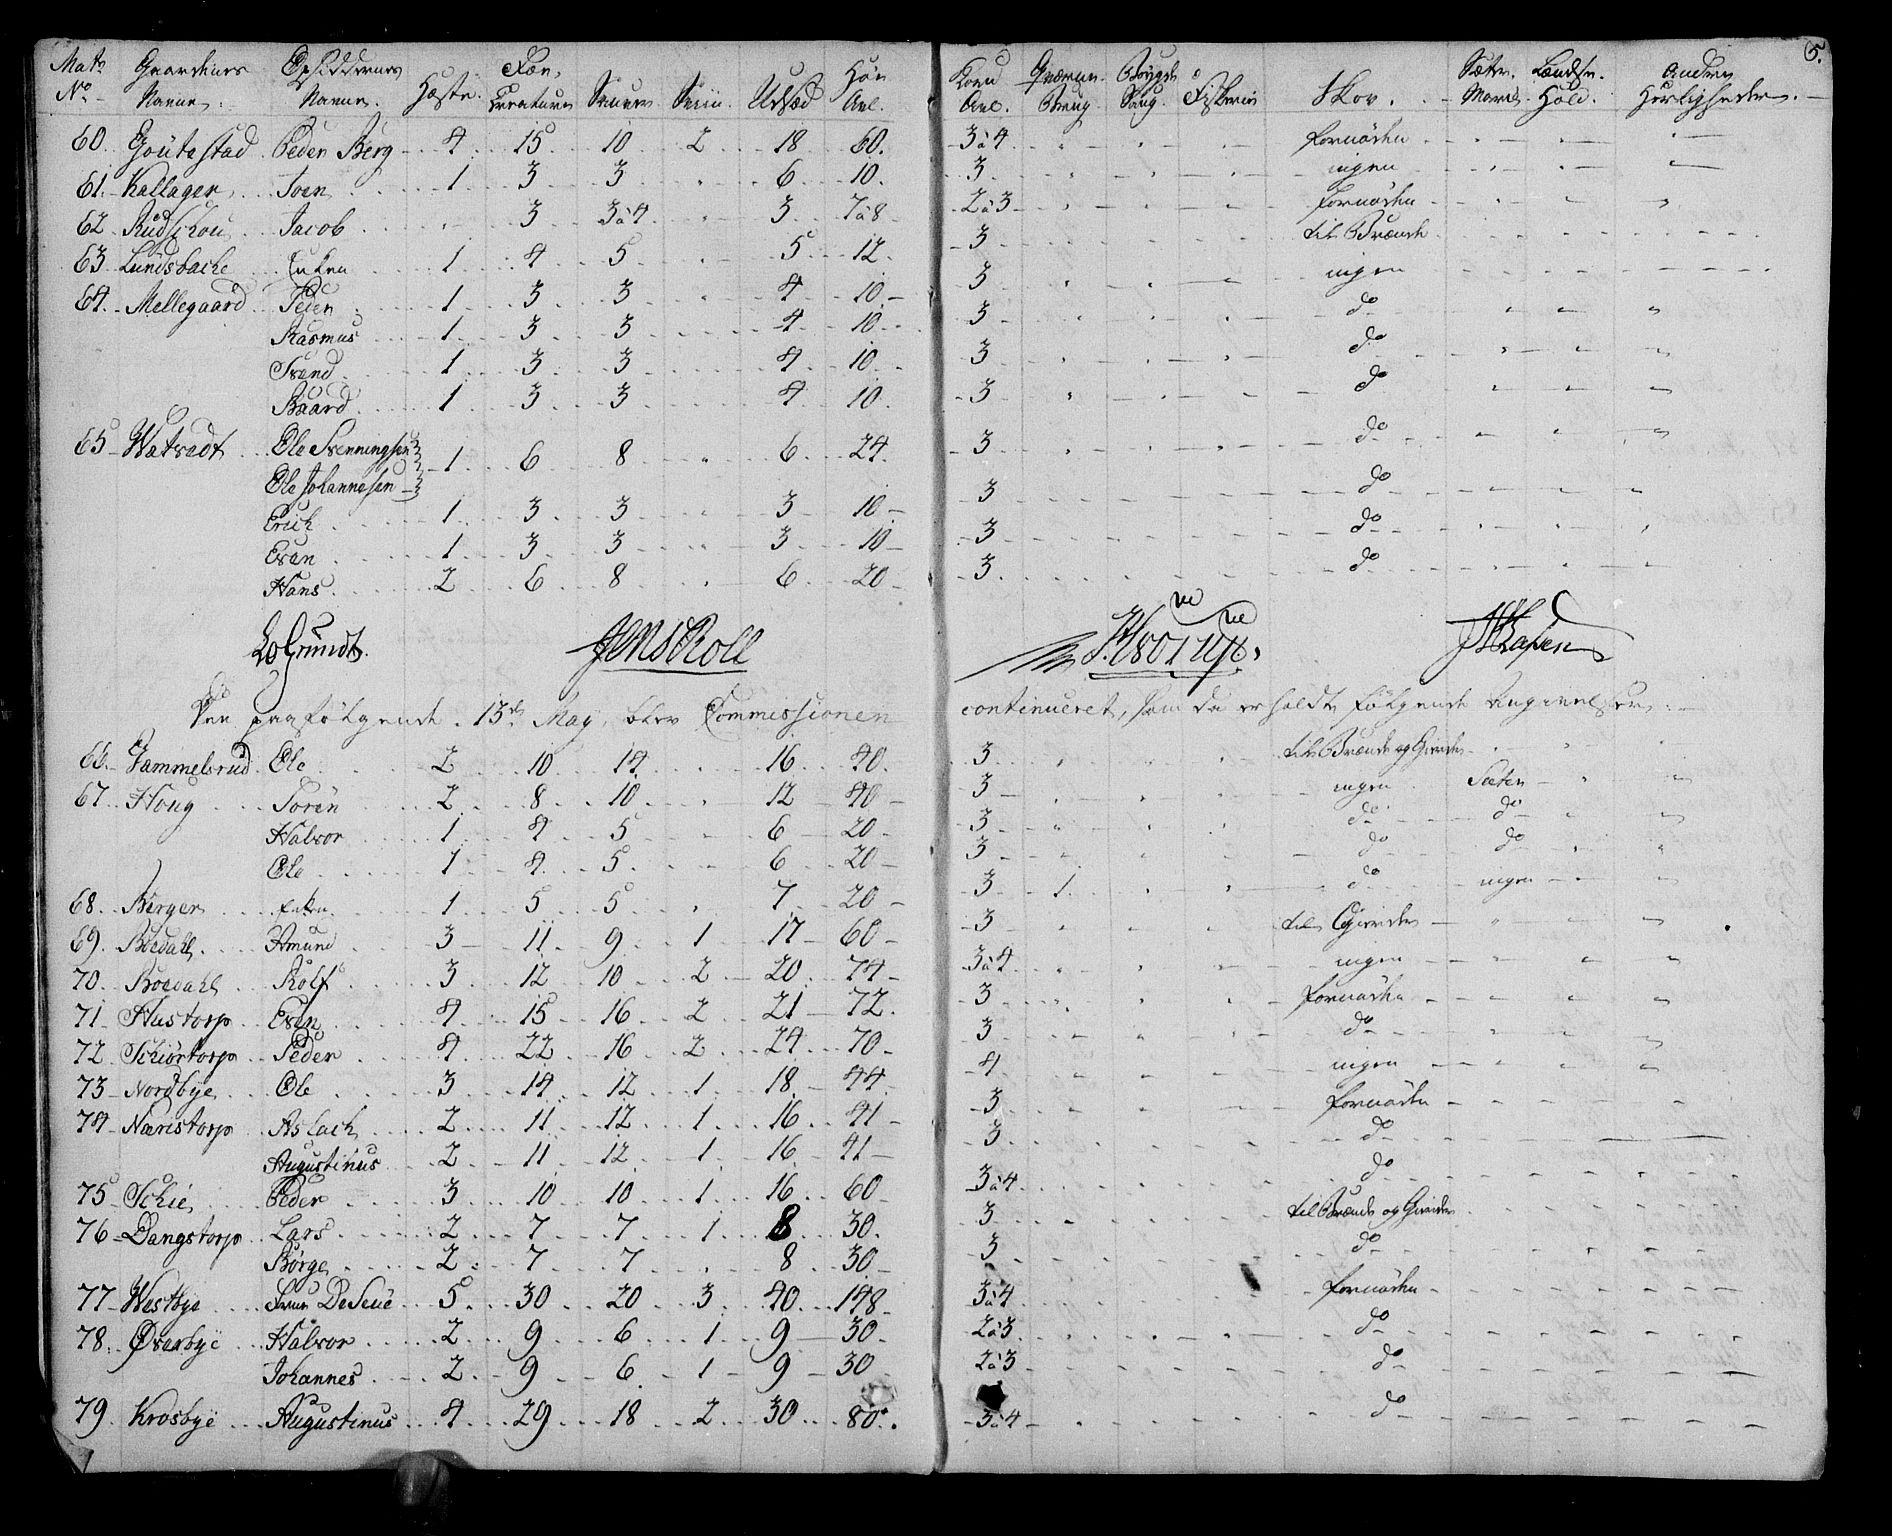 5.
Mat: Gaardenes Opsiddernes Fæ- Høe Korn Qværne- Bøygde Sæter- Lændse- Andre
No Navne. Navne. Heste. Creature Sauer Sviin. Udsæd Avl. Avl. Brug Saug. Fiskerie Skov. Mark Hold. Herligheder.
60. Goutestad Peder Berg 4 15 10 2 18 60. 3 à 4 fornøden
61. Kallager Joen 1 3 3 6 10. 3 ingen
62 Rudschou Jacob 3 3 à 4 3 7 à 8 2 à 3 fornøden
63 Lundsbache Enken 1 4 5 5 12. 3 til Brænde
64. Mellegaard Peder 1 3 3 4 10 3 ingen
Rasmus 1 3 3 4 10 3 do
Svend 1 3 3 4 10 3 do
Baard 1 3 3 4 10 3 do
65 Watvedt Ole Svenningsen 1 6 8 6 24. 3 do
Ole Johannesen
Erich 1 3 3 3 10 3 do
Even 1 3 3 3 10 3 do
Hans 2 6 8 6 20 3 do
LoGrundt. Jens Roll
Den paafølgende 13de May, blev Commissionen continueret, som da erholdte følgende Angivelser.
66 Gammelsrud Ole 2 10 14 16 40. 3 til Brænde og Gierder
67 Houg Soren 2 8 10 12 40 3 ingen Sæter
Halvor 1 4 5 6 20 3 do do
Ole 1 4 5 6 20 3 do do
68. Berger Enken 1 5 5 7 20 3 1 do ingen
69. Boedahl Amund 3 11 9 1 17 60 3 til Gierder
70. Boedahl Rolf 3 12 10 2 20 74 3 à 4 ingen
71 Hustorp Even 4 15 16 2 21 72. 3 fornøden
72 Schiørtorp Peder 4 22 16 2 24 70 3 do
73 Nordbye Ole 3 14 12 1 18 44 4 ingen
74 Næristorp Aslach 2 11 12 1 16 41 3 fornøden
Augustinus 2 11 12 1 16 41 3 do
75 Schie Peder 3 10 10 1 16 60 3 à 4 do
76 Dangstorp Lars 2 7 7 1 8 30. 3 til Brænde og Gierder
Børge 2 7 7 8 30 3 do
77 Westbye Frue DeSeue 5 30 20 3 40 148 3 à 4 fornøden
78 Øverbye Halvor 2 9 6 1 9 30 2 à 3 do
Johannes 2 9 6 1 9 30 2 à 3 do
79 Krosbye Augustinus 4 29 18 2 30 80. 3 à 4 do